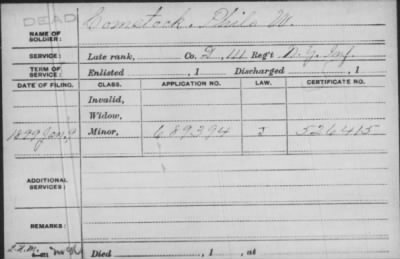 DEAD
NAME OF SOLDIER: Comstock, Philo M.
SERVICE: Late rank, Co. D, 111 Reg't N.Y. Inf.
TERM OF SERVICE: Enlisted , 1 Discharged , 1
DATE OF FILING. CLASS. APPLICATION NO. LAW. CERTIFICATE NO.
Invalid,
Widow,
1899 Jan. 9 Minor, 689394 526415
ADDITIONAL SERVICES:
REMARKS:
Died , 1 , at